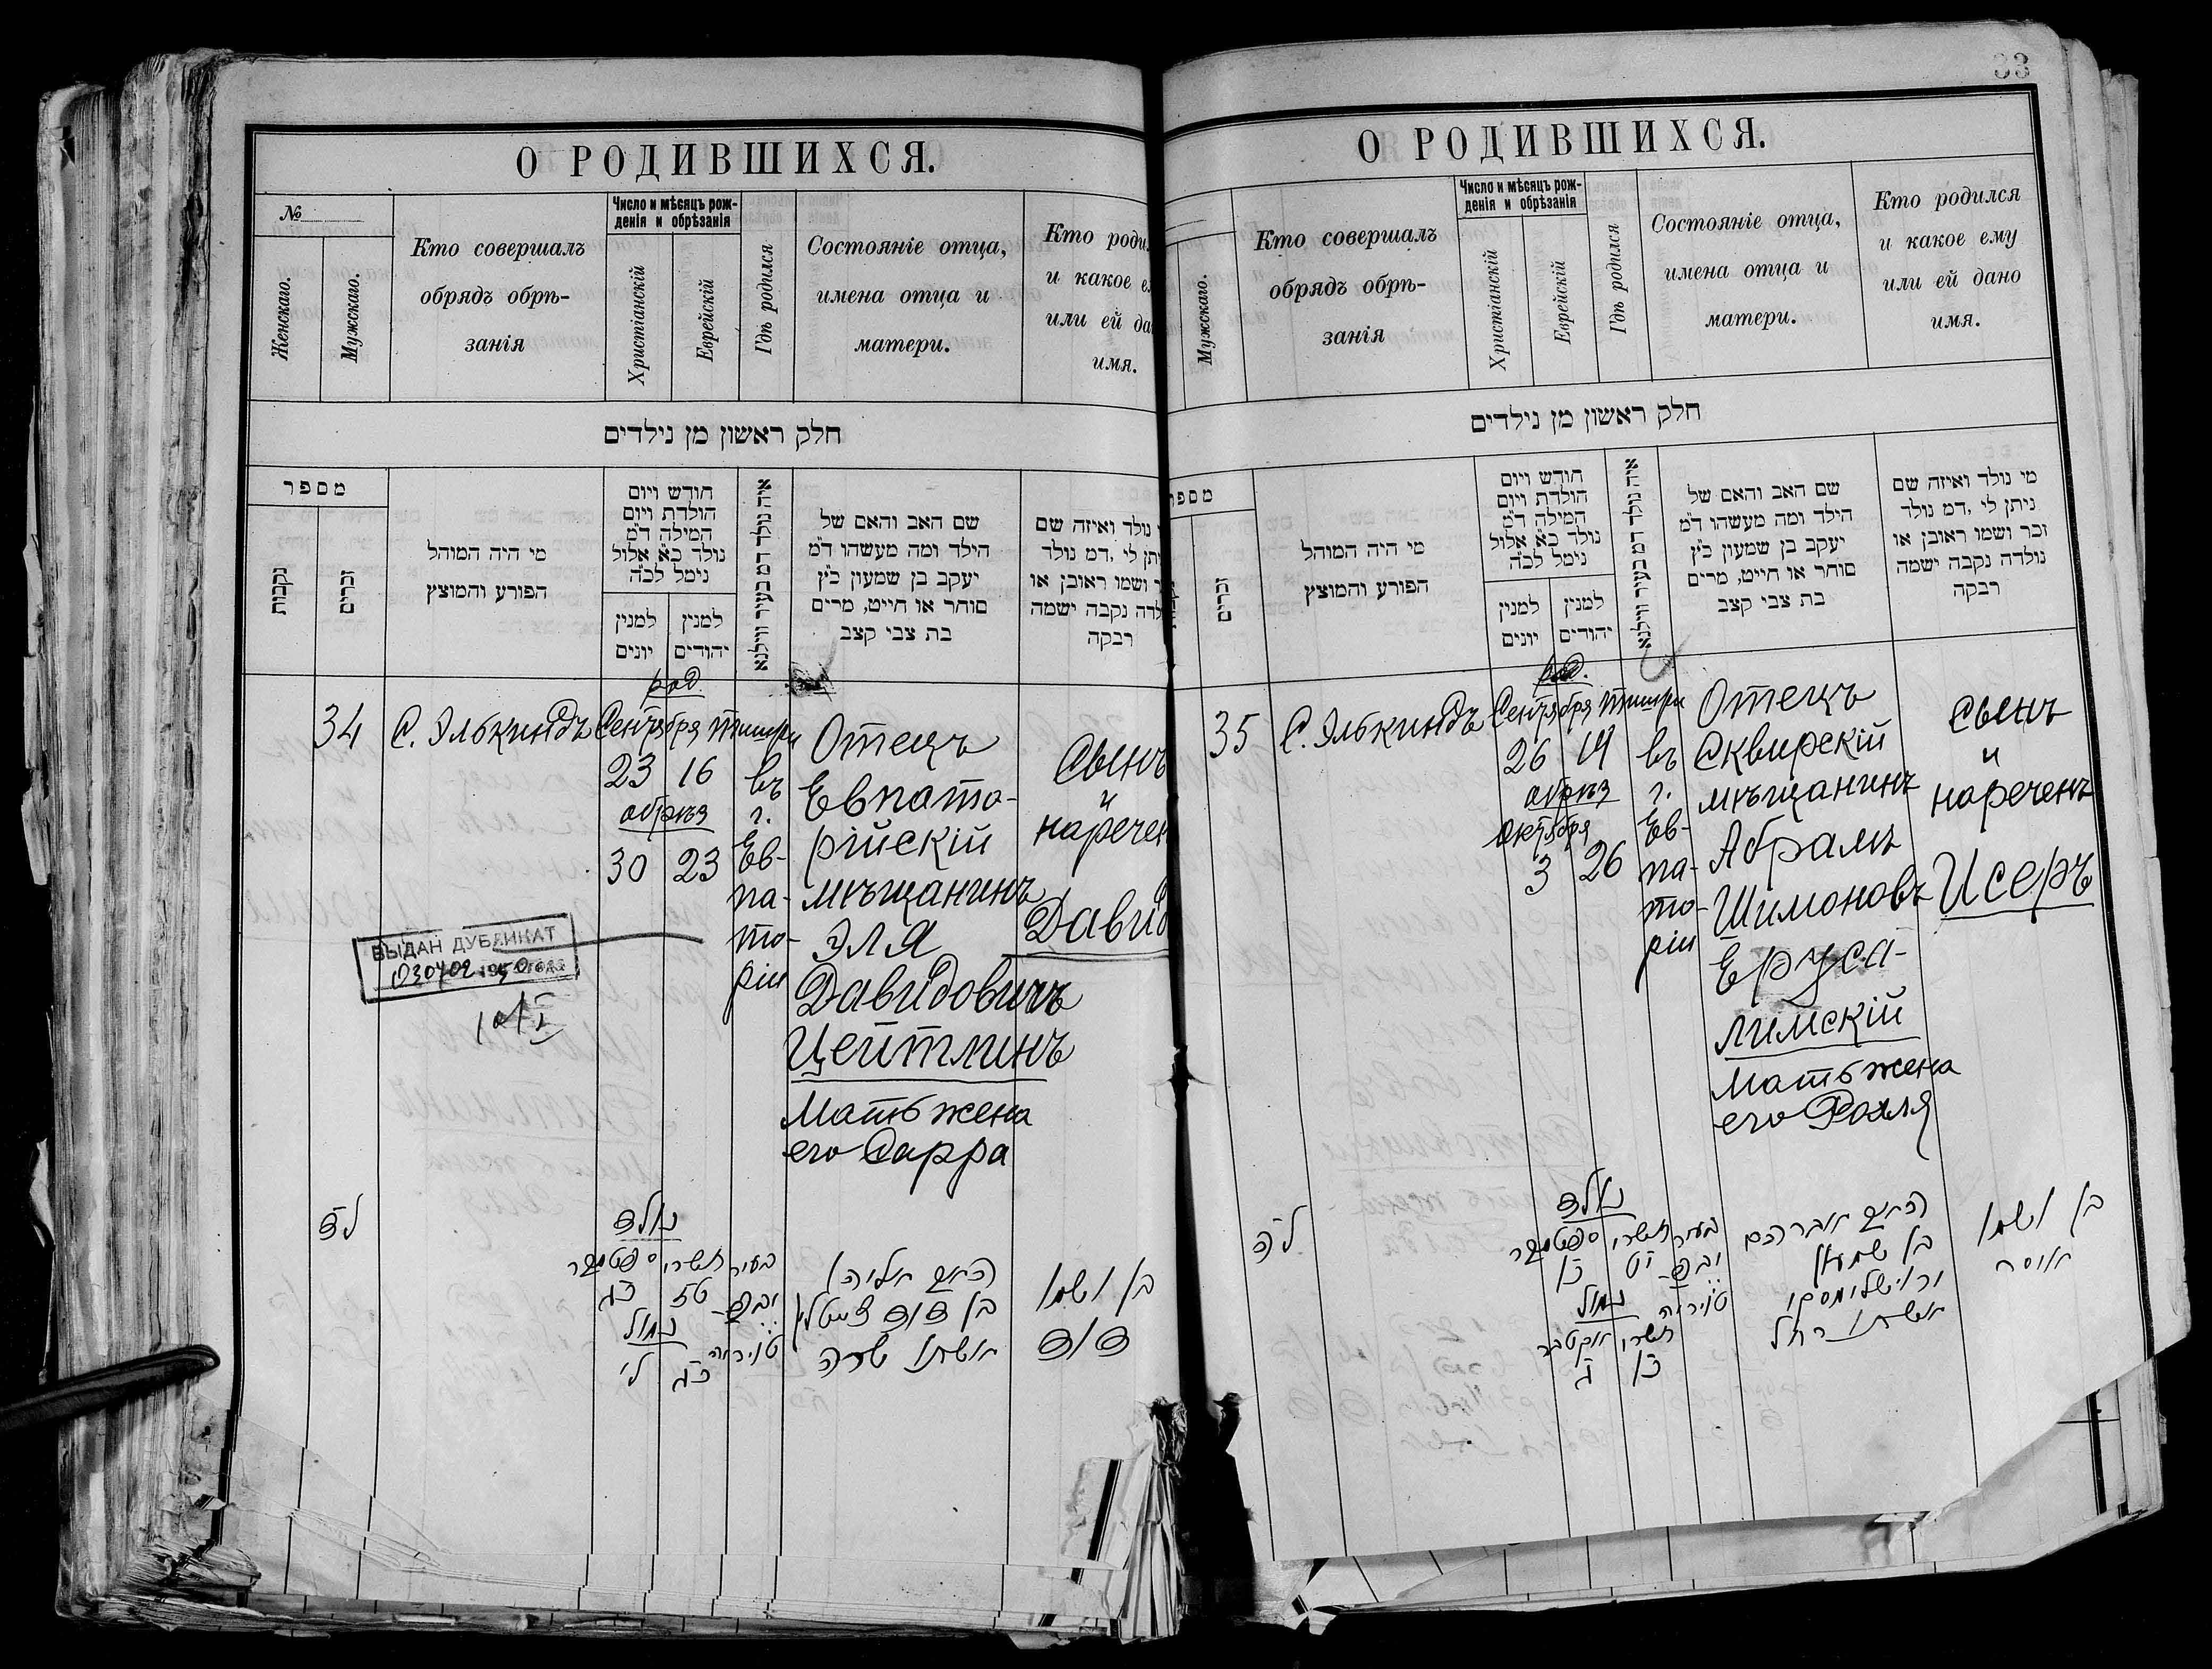 О РОДИВШИХСЯ.
№
Женскаго.
Мужскаго.
Кто совершалъ
обрядъ обрѣ-
занія
Число и мѣсяцъ рож-
денія и обрѣзанія
Христіанскій
Еврейскій
Гдѣ родился
Состояніе отца,
имена отца и
матери.
Кто роди
и какое е
или ей да
имя.
חלק ראשון מן נילדים
מספר
נקבות
זכרים
מי היה המוהל
הפורע והמוצץ
חודש ויום
הולדת ויום
המילה ד״מ
נולד כ״א אלול
נימל לכ״ה
למנין
יונים
למנין
יהודים
איה נולד דמ בעיר ווילנא
שם האב והאם של
הילד ומה מעשהו ד״מ
יעקב בן שמעון כ״ץ
סוחר או חייט, מרים
בת צבי קצב
נולד ואיזה שם
יתן לי ,דמ נולד
ר ושמו ראובן או
לדה נקבה ישמה
רבקה
34
С. Элькиндъ
род.
Сентября
Тишри
23
16
обрѣз
30
23
въ
г.
Ев-
па-
то-
ріи
Отецъ
Евпато-
рійскій
мѣщанинъ
Эля
Давидовичъ
Цейтлинъ
Мать жена
его Сарра
Сынъ
и
наречен
Давид
ВЫДАН ДУБЛИКАТ
לד
נולד
ספטמבר
תשרי
כג
טז
נמול
ל׳
כג
בעיר
יבפ
טוריה
האב אליהו
בן דוד צייטלין
אשתו שרה
בן ושמו
דוד
33
О РОДИВШИХСЯ.
Мужскаго.
Кто совершалъ
обрядъ обрѣ-
занія
Число и мѣсяцъ рож-
денія и обрѣзанія
Христіанскій
Еврейскій
Гдѣ родился
Состояніе отца,
имена отца и
матери.
Кто родился
и какое ему
или ей дано
имя.
חלק ראשון מן נילדים
מספר
זכרים
מי היה המוהל
הפורע והמוצץ
חודש ויום
הולדת ויום
המילה ד״מ
נולד כ״א אלול
נימל לכ״ה
למנין
יונים
למנין
יהודים
איה נולד דמ בעיר ווילנא
שם האב והאם של
הילד ומה מעשהו ד״מ
יעקב בן שמעון כ״ץ
סוחר או חייט, מרים
בת צבי קצב
מי נולד ואיזה שם
ניתן לי ,דמ נולד
זכר ושמו ראובן או
נולדה נקבה ישמה
רבקה
35
С. Элькиндъ
род.
Сентября
Тишри
26
19
обрѣз
Октября
3
26
въ
г.
Ев-
па-
то-
ріи
Отецъ
Сквирскій
мѣщанинъ
Абрамъ
Шимоновъ
Еруса-
лимскій
Мать жена
его Рохля
Сынъ
и
нареченъ
Исеръ
לה
נולד
ספטמבר
תשרי
כו
יט
נמול
אקטבר
תשרי
ג
כו
בעיר
יבפ
טוריה
האב אברהם
בן שמעון
ירושלימסקי
אשתו רחל
בן ושמו
איסר